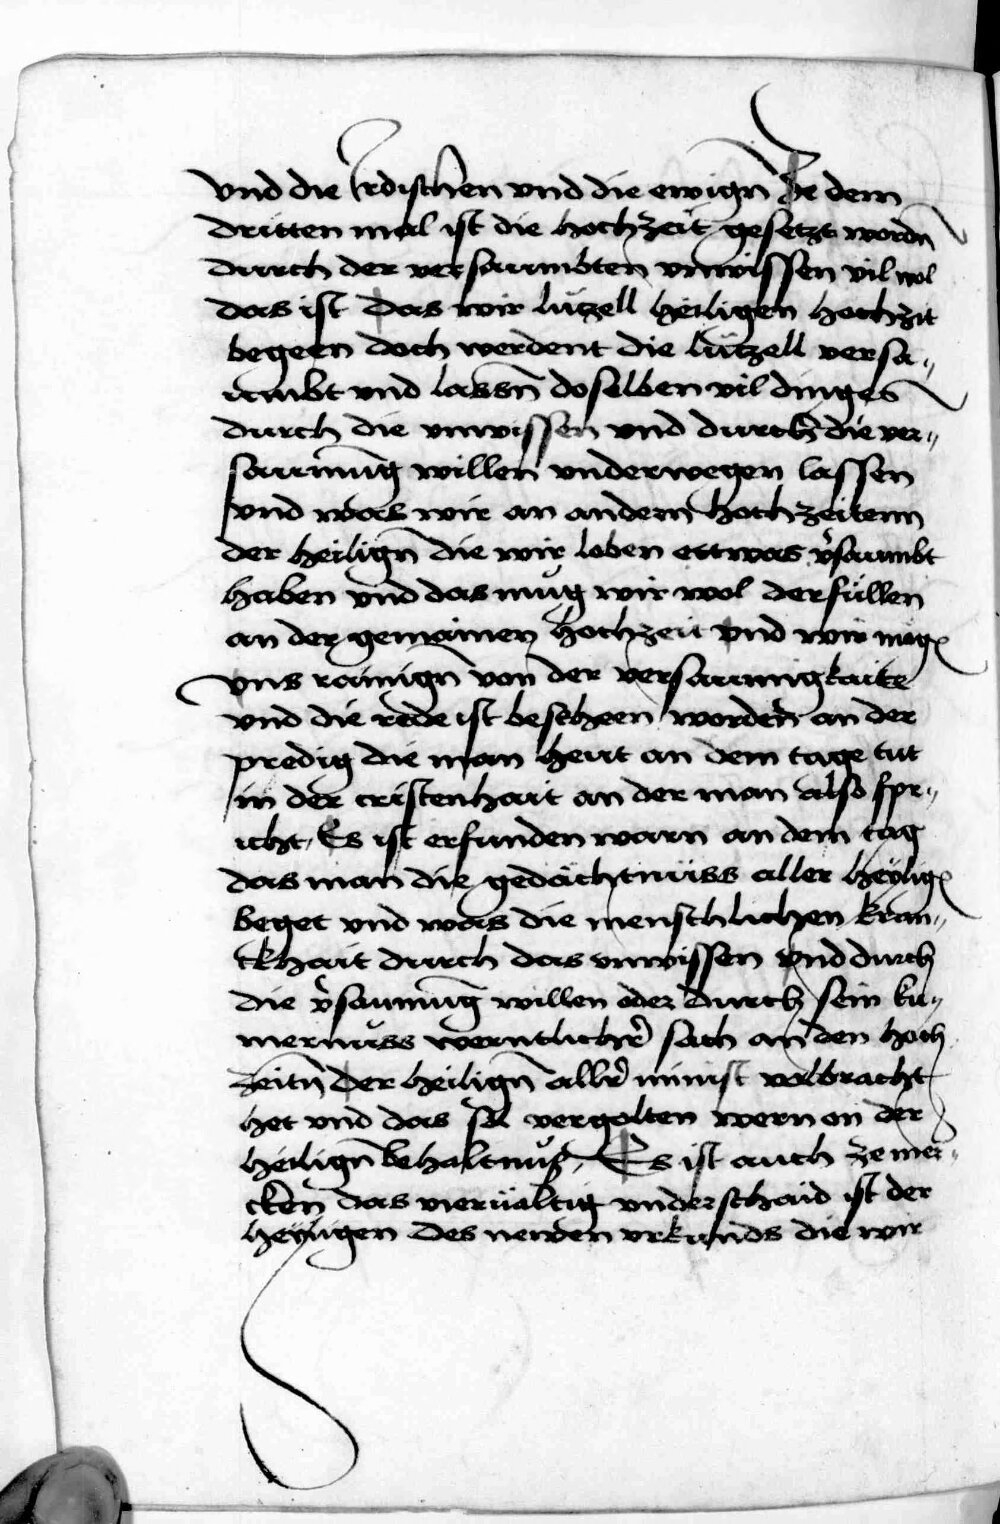 vnd die irdischen vnd die ewigñ Ze dem
dritten mal ist die hochzeit gesetzt wordñ
durch der versaumbten vnwissen vil wol
das ist das wir lützell heiligen hochzit
begeen doch werdent die lützell versa-
umbt vnd lassñ doselben vil dinges
durch die vnwissen vnd durch die ver-
saumũg willen vnderwegen lassen
vnd was wir an andern hochzeitenn
der heiligñ die wir loben ettwas v̉saumbt
haben vnd das mug wir wol derfüllen
an der gemainen hochzeit vnd wir müg
vns rainigñ von der versaumigkaite
vnd die rede ist bescheen worden an der
predig die man heut an dem tage tut
in der cristenhait an der man also spr-
icht, Es ist erfunden warn an dem tag
das man die gedächtnüss aller heÿlig
beget vnd was die menschlichen kran-
ckhait durch das vnwissen vnd durch
die v̉saumũg willen oder durch sein ku-
mernüss werntlichr̉ sach an den hoch
zeitñ der heiligñ allr̉ minist volbracht
het vnd das sol vergolten wern an der
heiligñ behaltnuß, Es ist auch ze mer-
cken das vierüaltig vnderschaid ist der
heÿligen des newen vrkunds die wir